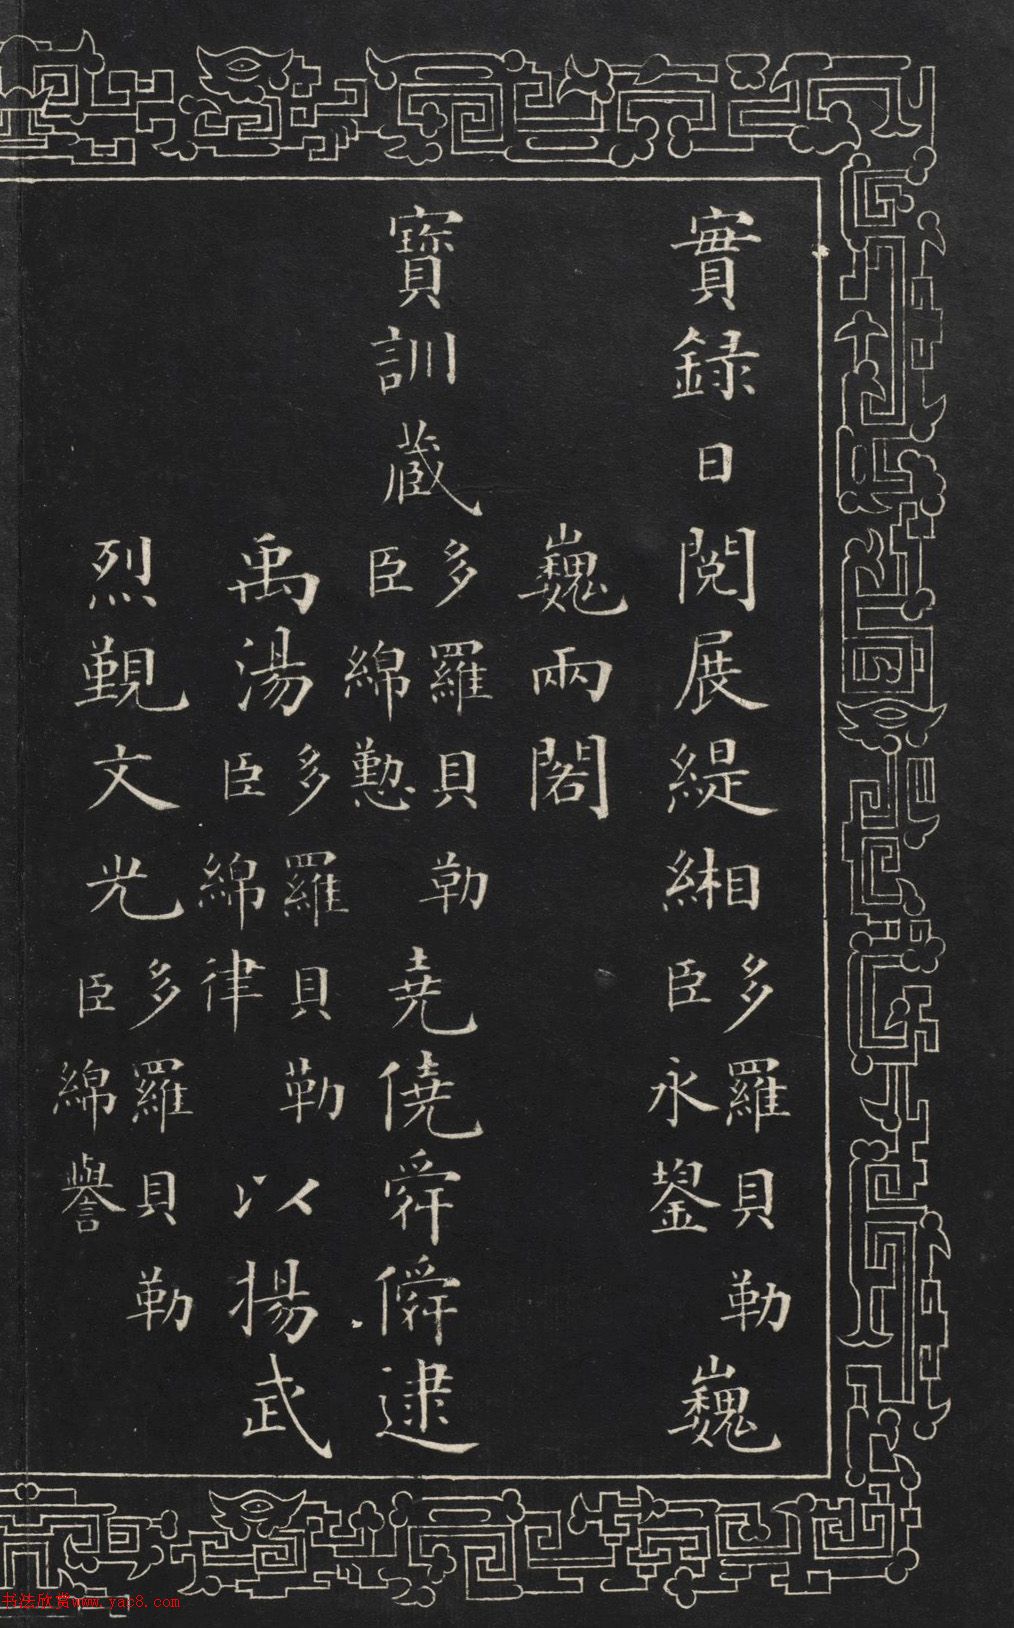 實録日閲展緹緗多羅貝勒臣永鋆巍
巍兩閣
寶訓藏多羅貝勒臣綿懃堯僥舜僢逮
禹湯多羅貝勒臣綿律以揚武
烈覲文光多羅貝勒臣綿譽
书法欣赏www.yac8.com